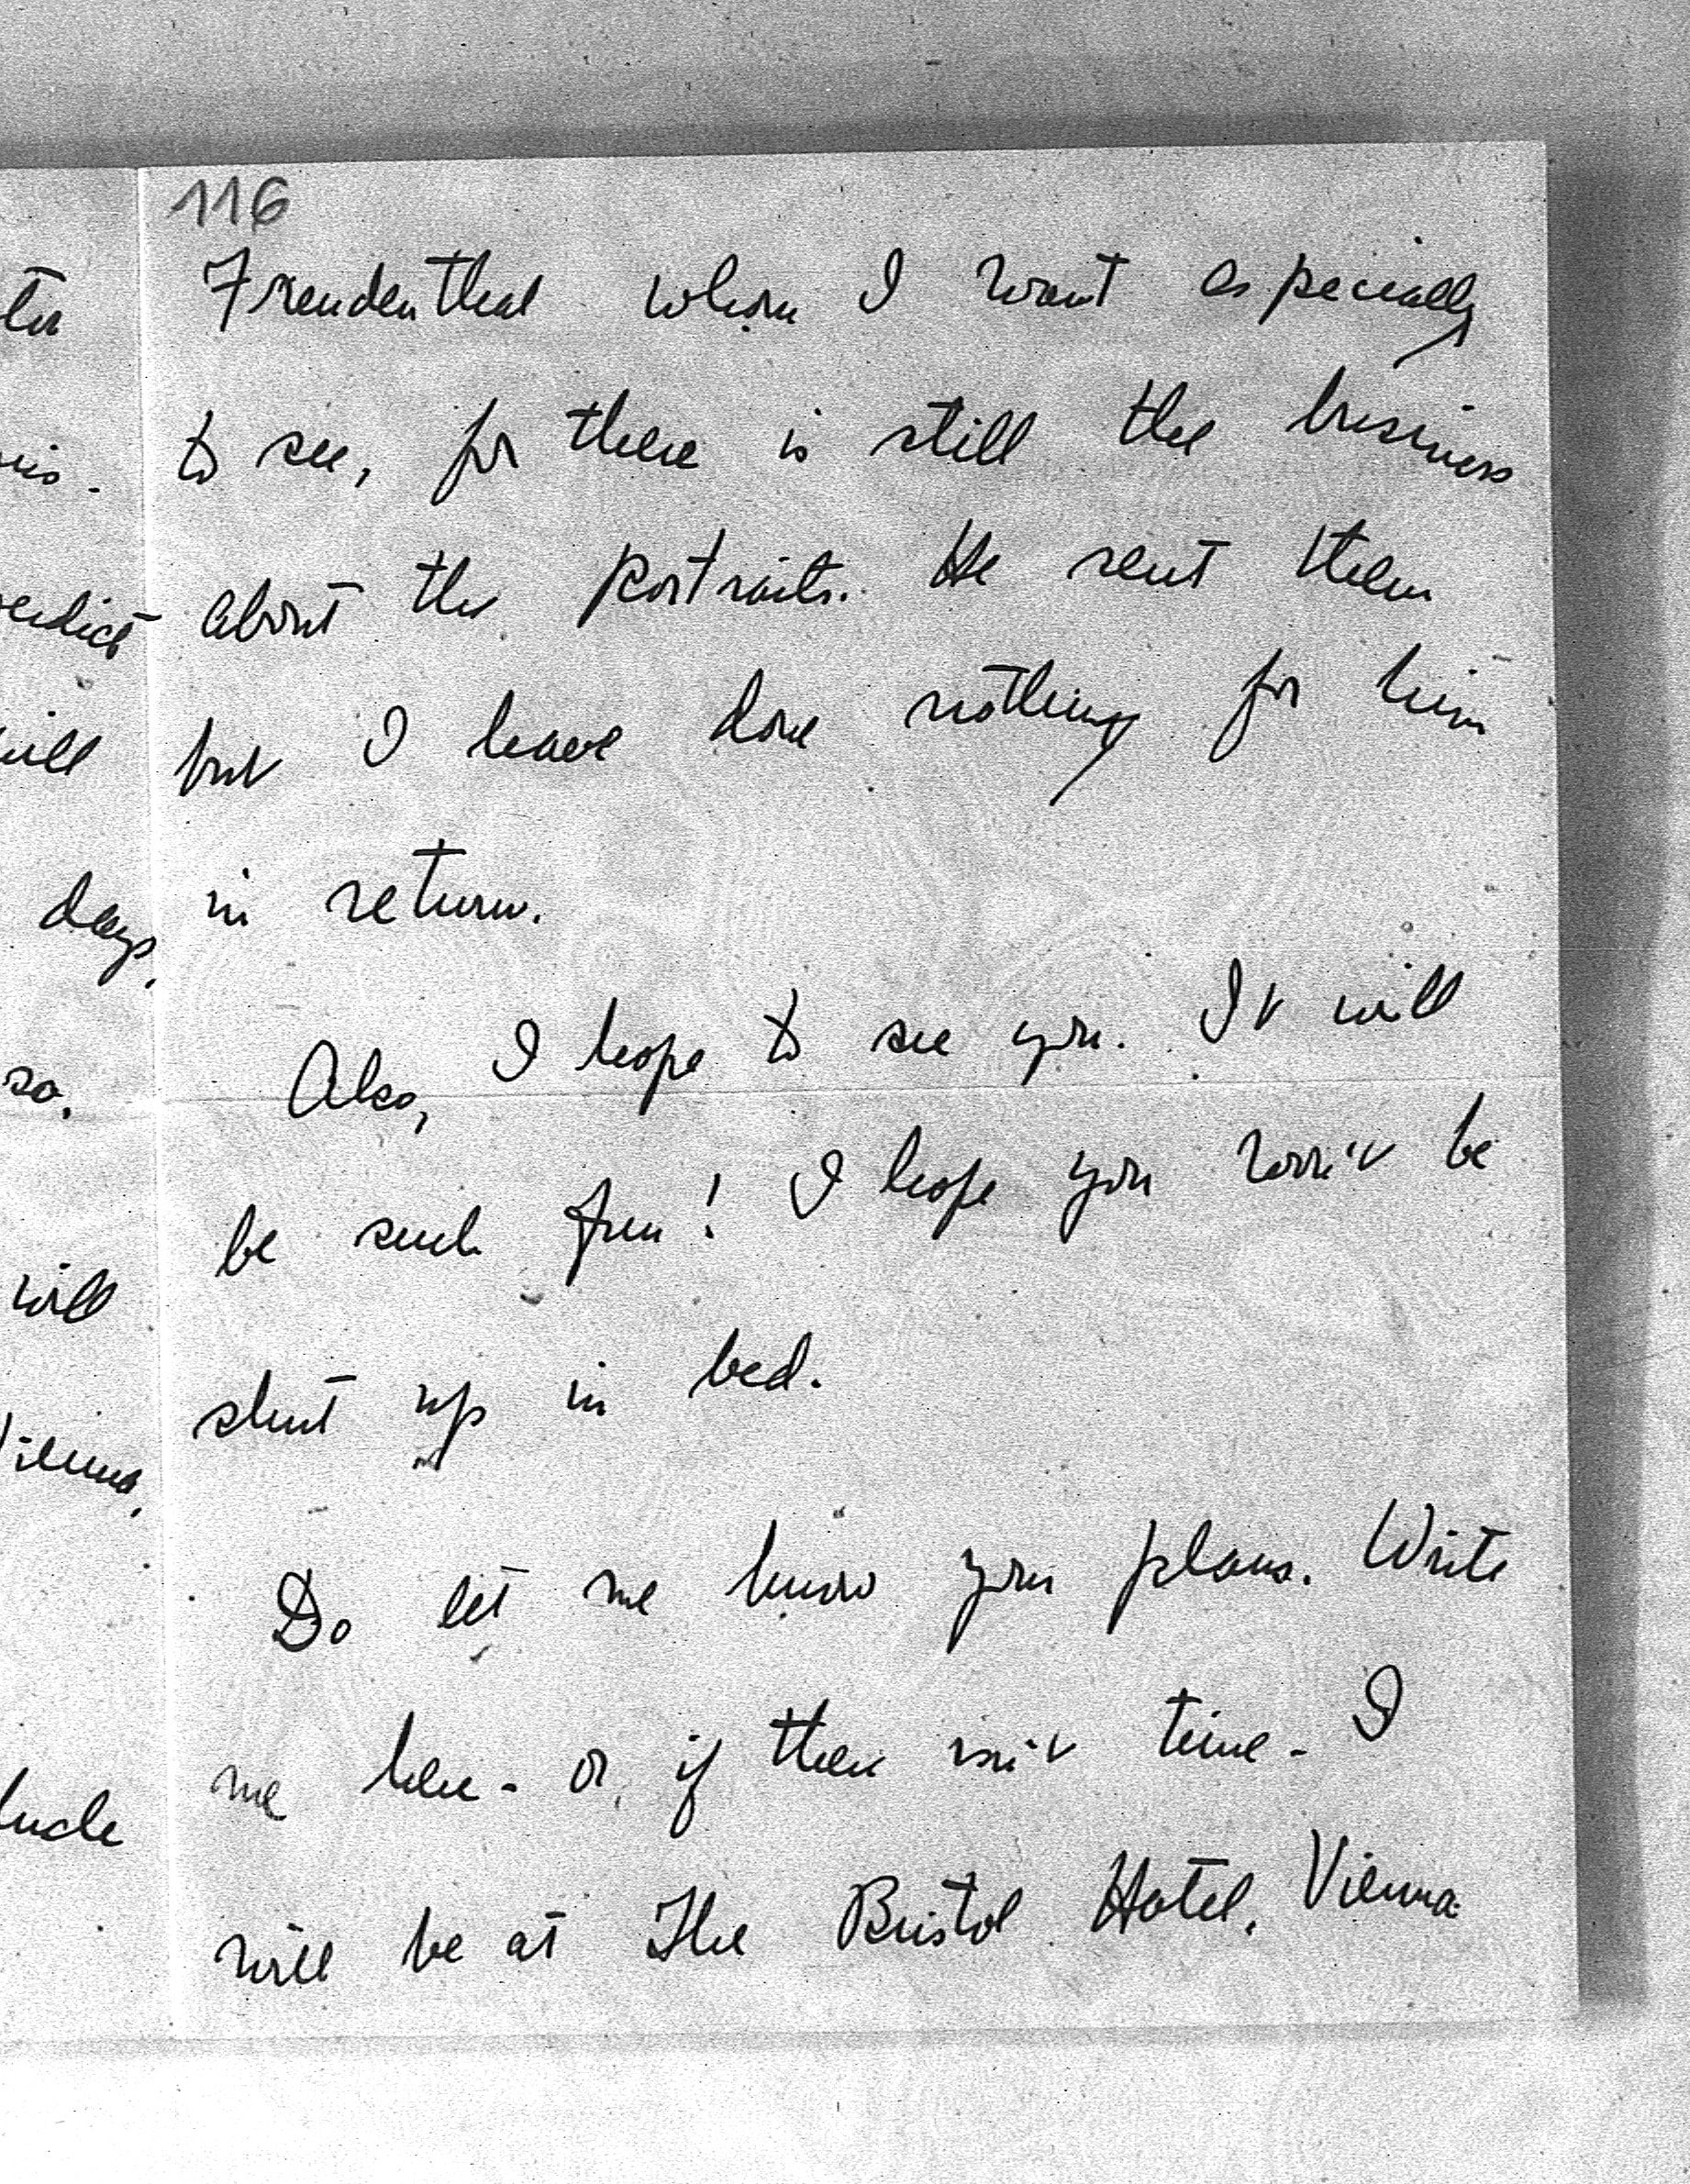 116
Freudenthal whom I want especially
to see, for there is still the business
about the portraits. He sent them
but I have done nothing for him
in return.
Also, I hope to see you. It will
be such fun! I hope you won't be
shut up in bed.
Do let me know your plans. Write
me here - or, if there isn't time - I
will be at The Bristol Hotel, Vienna
will
days,
so.
will